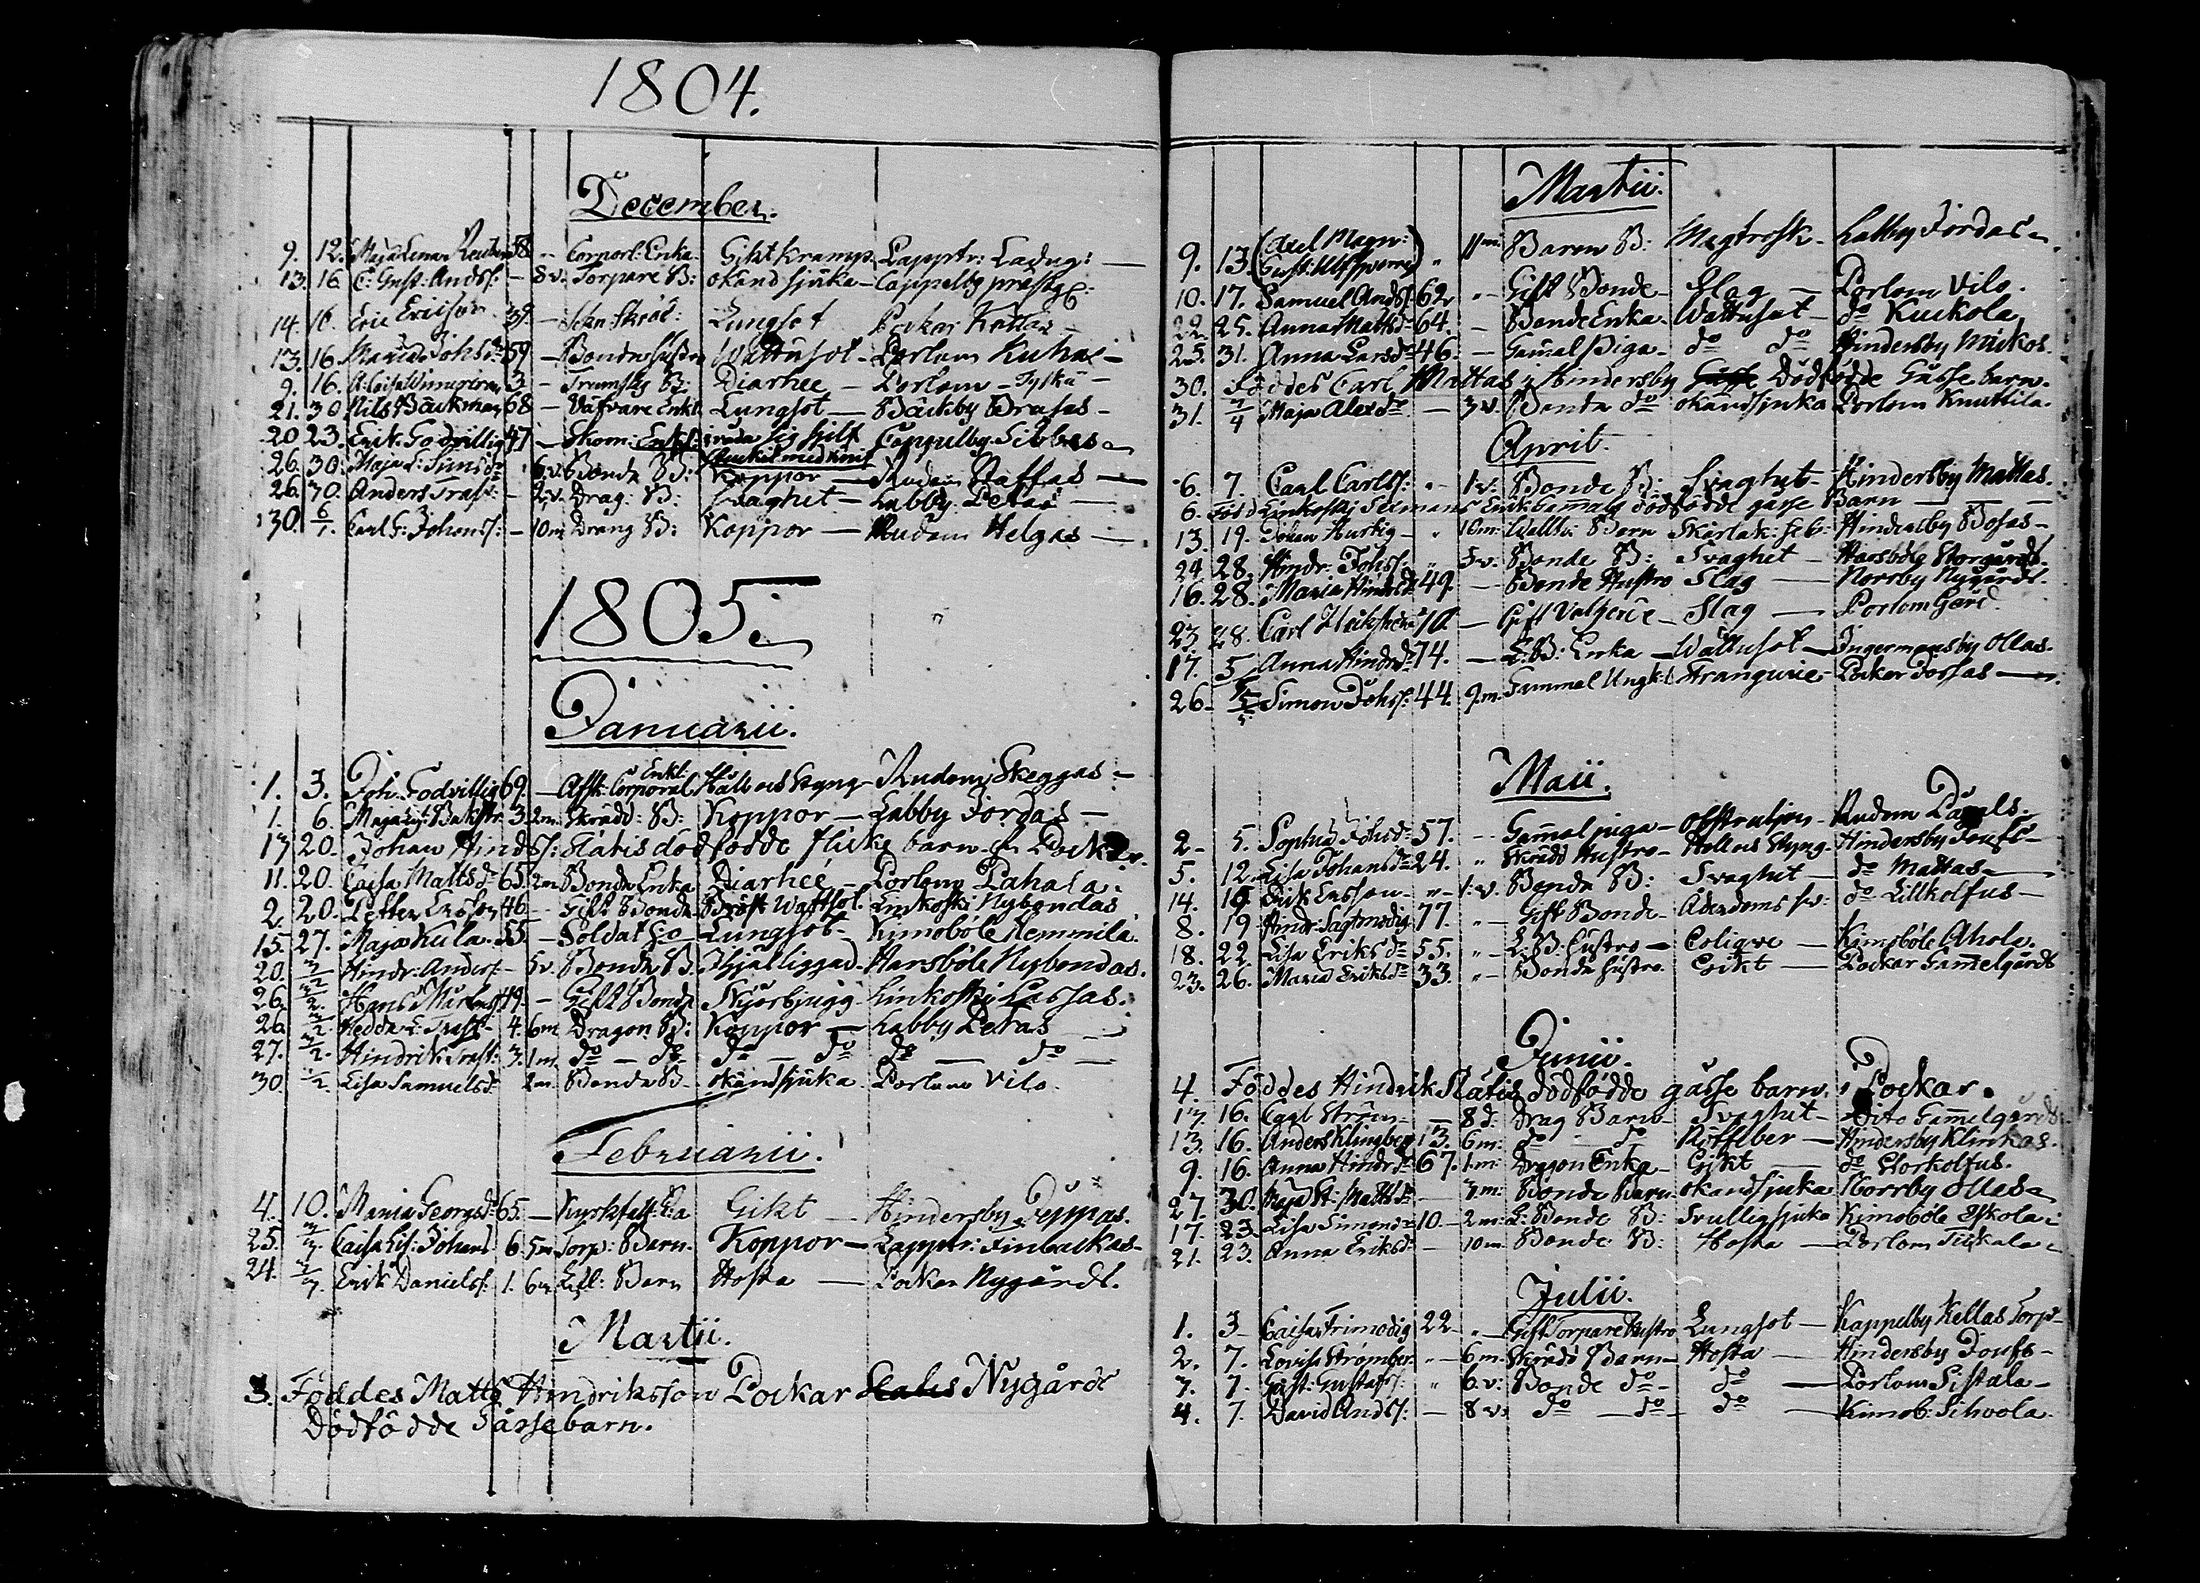 1804.
December.
9. 12. Maja Lena Reuter 58 - Corporl: Enka Gikt Kramp Lapptr: Ladug: —
13. 16 C: Gust: Andss: - 8 v. Torpare B: okänd sjuka - Cappelby prästg:
14. 16. Eric Ericsson 39. - Lungsot Pockar
13. 16. Maria Johsdr 59 - Bonde hustru Wattusot - Porlom Kuhai -
9. 16. 3 - B: Diarhee - Porlom - Tyskä -
21. 30 Nils Bäckman 68 - Väfvare Enkl. Lungsot - Bäckby Brasas -
20 23. Erik Godvillig 47 - Skom: Enkl: sig sjelf Cappelby Sibbas -
Anders med knif
26. 30. Maja L: Simsdr 6 v. Bonde B: Koppor - Rudom Staffas -
26. 30. Anders Trast: - 2 v. Drag: B: Svaghet - Labby Petas -
30. 6/1. Carl G: Johanss: - 10 m Dräng B: Koppor - Rudom Helgas -
1805.
Januarii.
Enkl:
1. 3. Joh. Godvillig 69. - Afsk: Corporal Håll och Styng - Rudom Skeggas -
1. 6. Maja Bäkstr. 3. 2 m. Skrädd: B: Koppor - Labby Jordas -
17 20. Johan Hindss: Slätis dödfödde flicke barn fr. Pockar.
11. 20. Caisa Mattsdr 65. 2 m Bonde Enka Diarhee - Porlom Pahala.
2. 20. Petter Ersson 46 - Gift Bonde Bröst Wattsot. Linkoski Nybondas
15. 27. Maja Kula. 55. - Soldat Lungsot - Kimoböle Hemmila.
20. 3/2 Hindr: Anderss - 5 v. Bonde B. Ihjälliggad. Harsböle Nybondas.
26. 3/2. Hans 49. - Gift Bonde Skjörbjugg Linkoski Lassas.
26. 3/2. Hedda L: Trast - 4. 6 m. Dragon B: Koppor - Labby Petas
27. 3/2. Hindrik Trast: 3. 1 m. do - do do - do do - do -
30. /2 Lisa Samuelsdr 2 m. Bonde B. okänd sjuka Porlom Vilo.
Februarii.
4. 10. Maria Georgsdr 65. - Gikt - Hindersby Juppas.
25. 3/ Caisa Lis: Johans 6. 5 m Torp: Barn. Koppor - Lapptr: Finbackas -
24. 3/ Erik Danielss: 1. 6 m Barn Hosta - Pockar Nygårds.
Martii.
3. Föddes Matts Hindriksson Pockar Nygårds
Dödfödde Gåssebarn.
Martii.
9. 13. (Axel Magn: Gust: Ulfsparre) " 11 m: Baron B: Magtrosk - Labby Jordas.
10. 17. Samuel Andss: 62 " - Gift Bonde - Slag - Porlom Vilo.
22. 25. Anna Mattsdr 64. - Bonde Enka - Wattusot - do Kuckola
25. 31. Anna Larsdr 46. - Gamal Piga - do do Hindersby Mickos.
30. Föddes Carl Mattas i Hindersby Dödfödde Gåsse barn.
31. 7/4 Maja Alexdr - 3 v. Bonde do okänd sjuka Porlom Knuttila.
April.
6. 7. Carl Carlss: " - 1 v. Bonde B: Svaghet - Hindersby Mattas.
6. född Linkoski dödfödde gåsse Barn —
13. 19. Johan Hurtig - " 10 m: Barn Skarlak: feb: Hindersby Bosas -
24. 28. Hindr: Johss: " 5 v: Bonde B: Svaghet - Harsböle Storgårds.
16. 28. Maria Hindrsdr 49. - Bonde Hustro Slag - Norrby Nygårds.
23. 28. Carl 70 - Gift Slag - Porlom Gård.
17. 5 Anna Hindrsdr 74. - Enka - Wattusot - Ingermansby Ollas.
26. 5/5. Simon Johss: 44. 9 m. Gammal Ungk: Strangurie - Pockar Jossas -
Maii.
2. 5. Sophia Johsdr 57. - Gamal piga - Obstrutjon - Rudom Pavals.
5. 12. Lisa Johansdr 24. " Skrädd Hustro - Håll och Styng - Hindersby Joufs -
14. 19. Erik Ersson - " - 1 v. Bonde B: Svaghet - do Mattas
8. 19 Hindr: Sagtmodig 77. " - Gift Bonde - Ålderdoms sv: do Lillkolfus -
18. 22. Lisa Eriksdr 55. " - Hustro - Colique - Kimoböle Ahola.
23. 26. Maria Eriksdr 33. " - Bonde hustro Gikt - Pockar Gammelgårds
Junii.
4. Föddes Hindrik Slätis dödfödde gåsse barn. i Pockar.
17. 16. Carl Ström - - 8 d: Drag Barn - Svaghet - Dito Gammelgårds
13. 16. Anders Klingberg 13. 6 m: do - do Rötfeber - Hindersby Klinkas.
9. 16. Anna Hindrsdr 67. 1 m: Dragon Enka - Gikt - do Storkolfus.
27. 30. Maja St: Mattsdr - 3 m: Bonde Barn okänd sjuka Norrby Ollas
17. 23. Lisa Simonsdr 10 - 2 m: Bonde B: Svullig sjuka Kimoböle Eskola:
21. 23 Anna Eriksdr - 10 m Bonde B: Hosta - Porlom Tuckala:
Julii.
1. 3 - Caisa Frimodig 22 - " - Gift Torpare Hustro Lungsot - Kappelby Kellas Torp -
2. 7. Lovisa Strömber " - 6 m: Skrädd Barn - Hosta - Hindersby Joufs -
7. 7. Gust: Gustafss: " 6 v: Bonde do - do - Porlom Sistala -
4. 7. David Andss: - 8 v: do - do - do - Kimob: Sihvola.